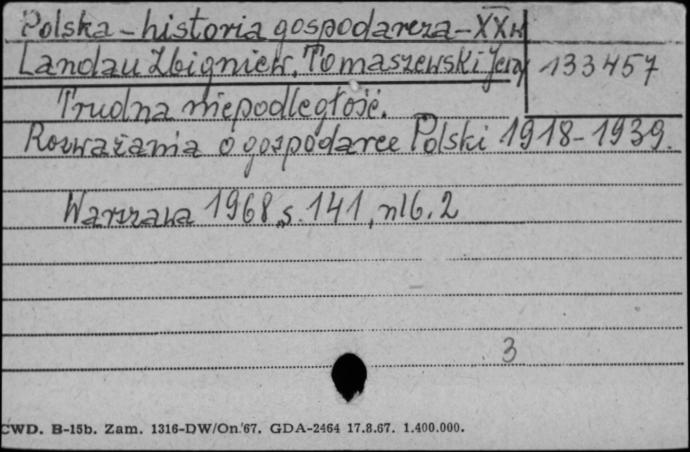 Polska - historia gospodarcza - XX w
Landau Zbigniew, Tomaszewski Jerzy 133457
Trudna niepodległość.
Rozważania o gospodarce Polski 1918-1939.
Warszawa 1968, s. 141, nlb. 2
3
CWD. B-15b. Zam. 1316-DW/On.'67. GDA-2464 17.8.67. 1.400.000.